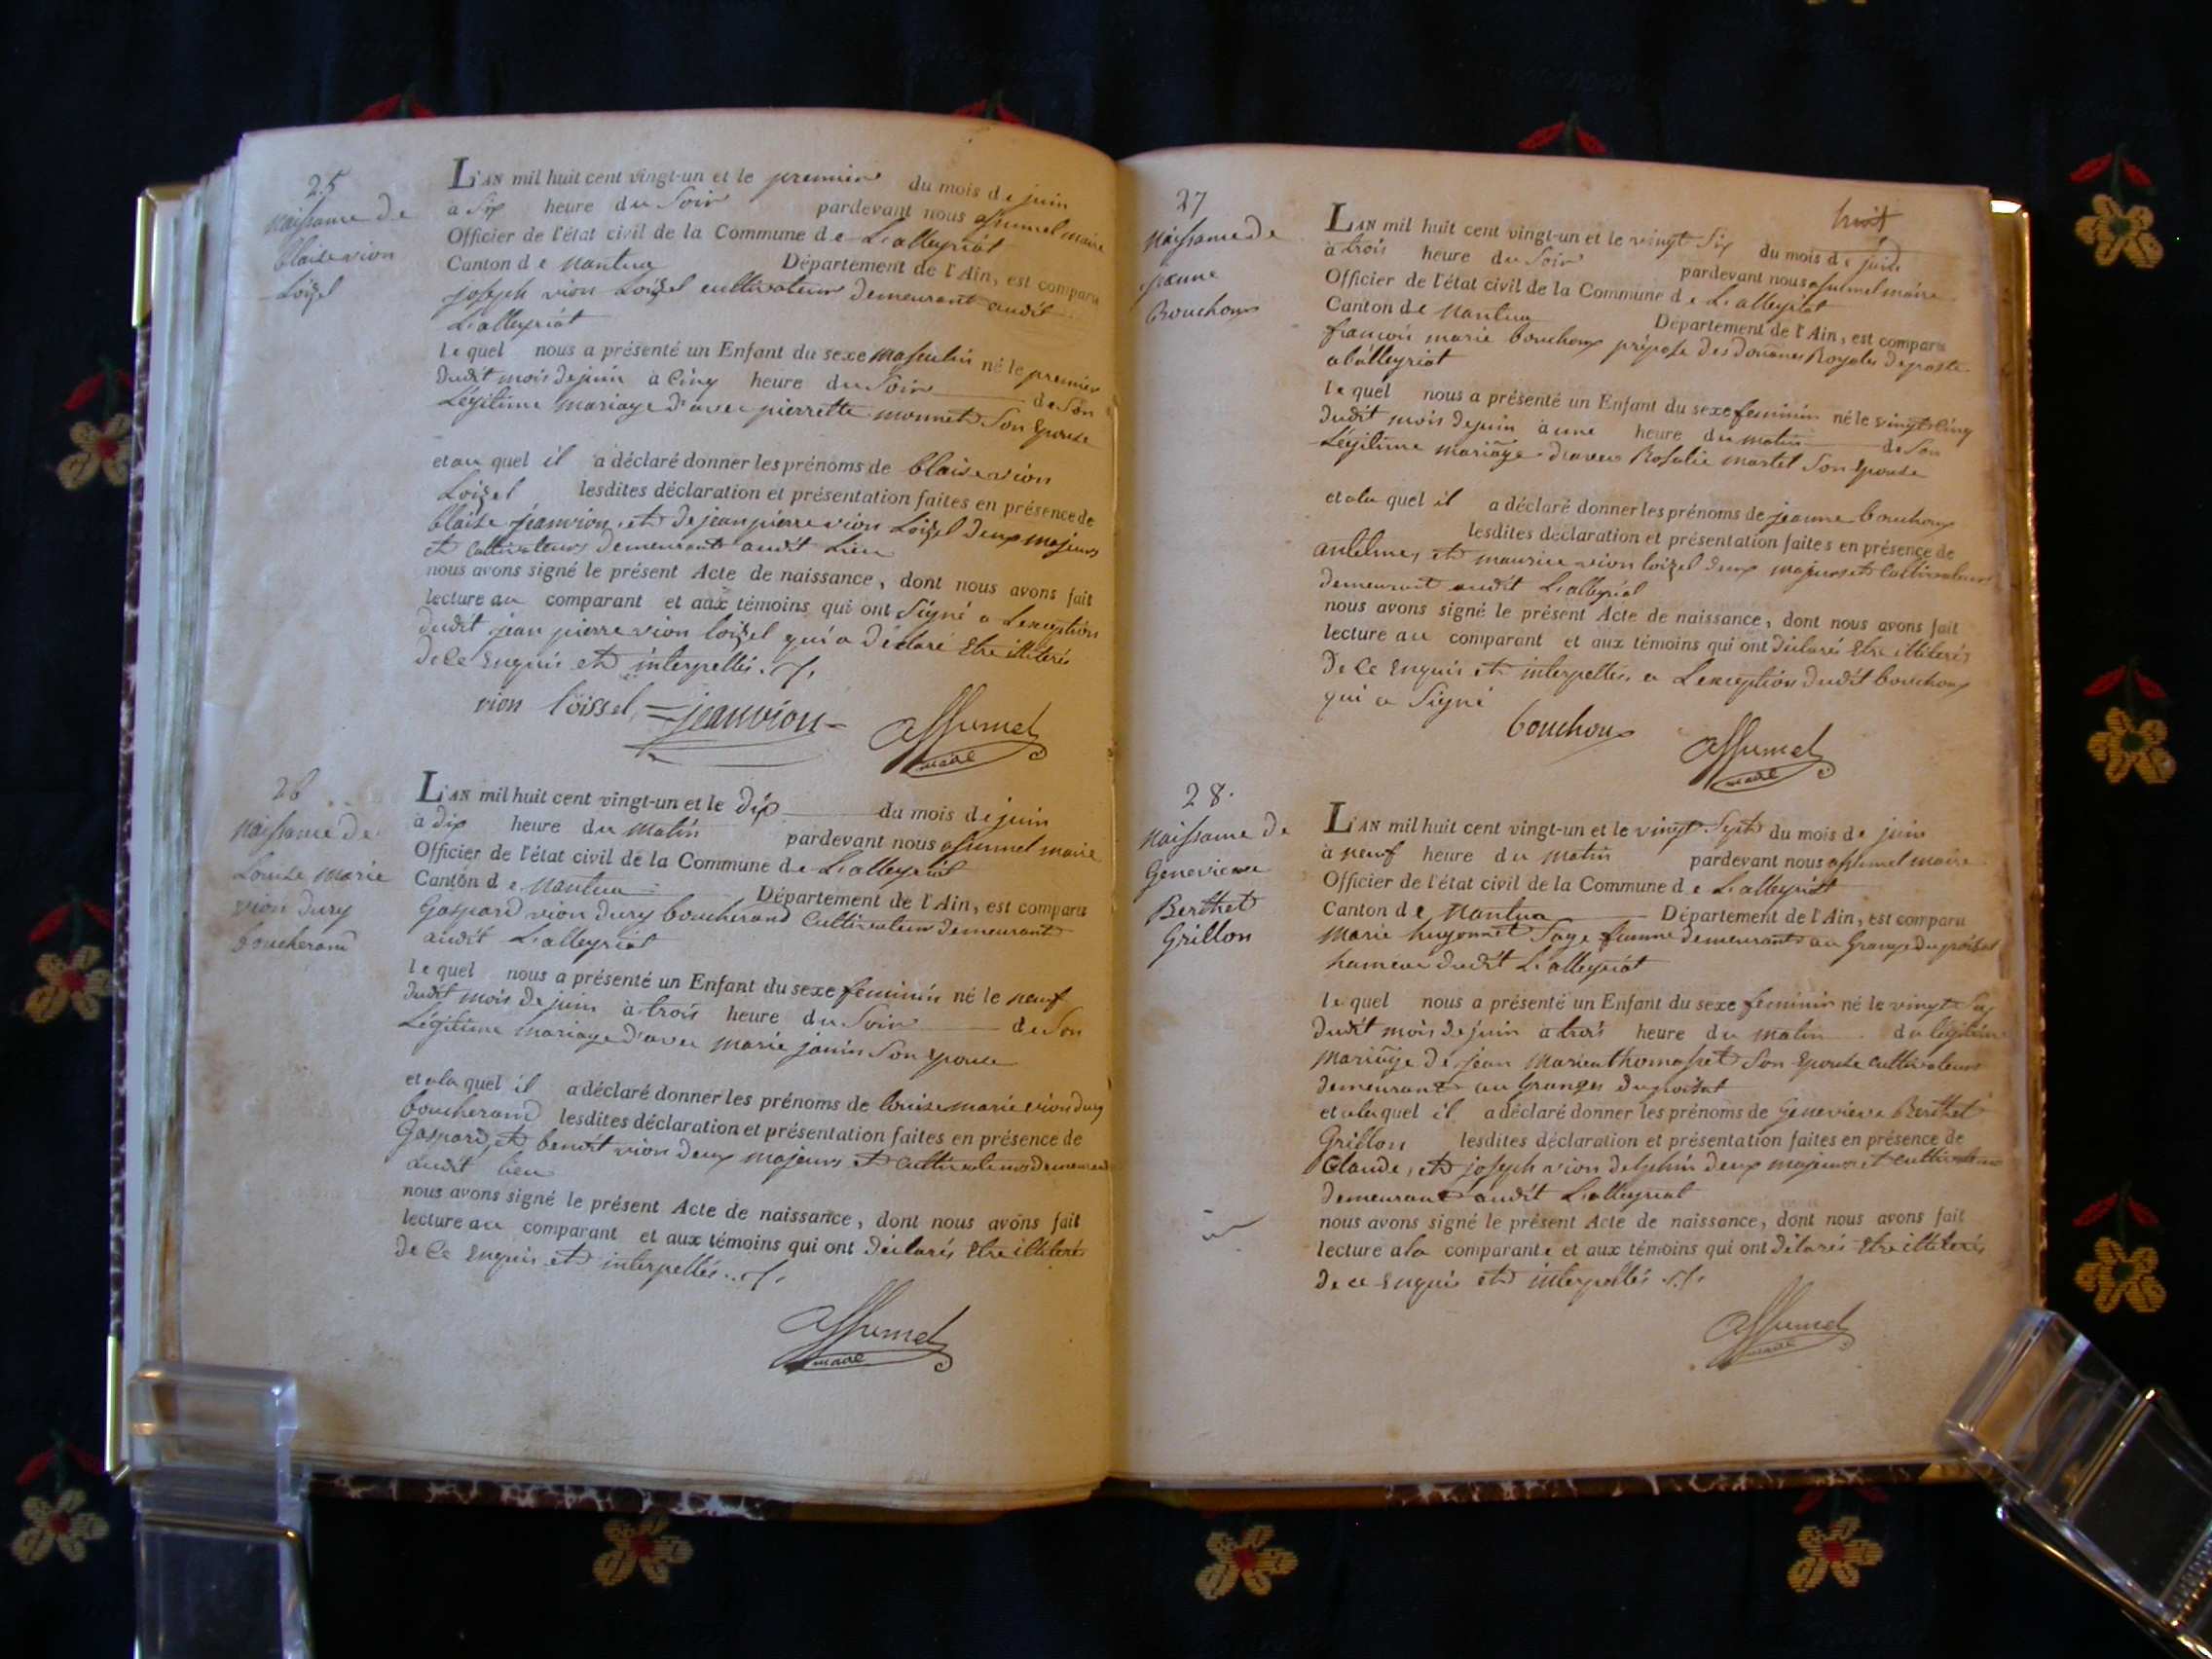 25
naissance de
blaise vion
Loizel
L'AN mil huit cent vingt-un et le premier du mois de juin
à Six heure du Soir pardevant nous assumel maire
Officier de l'état civil de la Commune de Lalleyriat
Canton de Nantua Département de l'Ain, est comparu
joseph vion Loizel cultivateur demeurant audit
Lalleyriat
lequel nous a présenté un Enfant du sexe masculin né le premier
dudit mois de juin à Cinq heure du Soir de Son
Légitime mariage d'avec pierrette monnet Son Epouse
et au quel il a déclaré donner les prénoms de blaise vion
Loizel lesdites déclaration et présentation faites en présence de
blaise jeanvion, et de jean pierre vion Loizel deux majeurs
et Cultivateurs demeurant audit Lieu
nous avons signé le présent Acte de naissance, dont nous avons fait
lecture au comparant et aux témoins qui ont Signé a Lexception
dudit jean pierre vion loizel qui a déclaré Etre illiterés
de Ce Enquis et interpellés
vion loissel jeanvion assumel
maire
26
naissance de
Louise marie
vion dury
boucherand
L'AN mil huit cent vingt-un et le dix du mois de juin
à dix heure du matin pardevant nous assumel maire
Officier de l'état civil de la Commune de Lalleyriat
Canton de Nantua Département de l'Ain, est comparu
Gaspard vion dury boucherand Cultivateur demeurant
audit Lalleyriat
lequel nous a présenté un Enfant du sexe feminin né le neuf
dudit mois de juin à trois heure du Soir de Son
Légitime mariage d'avec marie janin Son Epouse
et a la quel il a déclaré donner les prénoms de louise marie vion dury
boucherand lesdites déclaration et présentation faites en présence de
Gaspard, et benoit vion deux majeurs et Cultivateurs demeurant
audit lieu
nous avons signé le présent Acte de naissance, dont nous avons fait
lecture au comparant et aux témoins qui ont déclarés Etre illiterés
de Ce Enquis et interpellés
assumel
maire
huit
27
naissance de
jeanne
Bouchoux
L'AN mil huit cent vingt-un et le vingt Six du mois de juin
à trois heure du Soir pardevant nous assumel maire
Officier de l'état civil de la Commune de Lalleyriat
Canton de Nantua Département de l'Ain, est comparu
françois marie bouchoux préposé des douanes Royales de poste
a lalleyriat
lequel nous a présenté un Enfant du sexe feminin né le vingt Cinq
dudit mois de juin à une heure du matin de Son
Légitime mariage d'avec Rosalie martel Son Epouse
et a la quel il a déclaré donner les prénoms de jeanne bouchoux
lesdites déclaration et présentation faites en présence de
antelme, et maurice vion loizel deux majeurs et Cultivateurs
demeurant audit Lalleyriat
nous avons signé le présent Acte de naissance, dont nous avons fait
lecture au comparant et aux témoins qui ont déclarés Etre illiterés
de Ce Enquis et interpellés a Lexception dudit bouchoux
qui a Signé
bouchoux assumel
maire
28.
naissance de
Genevieve
Berthet
Grillon
L'AN mil huit cent vingt-un et le vingt Sept du mois de juin
à neuf heure du matin pardevant nous assumel maire
Officier de l'état civil de la Commune de Lalleyriat
Canton de Nantua Département de l'Ain, est comparu
Marie hugonnet Sage femme demeurant au Grange du poizat
hameau dudit Lalleyriat
lequel nous a présenté un Enfant du sexe feminin né le vingt Six
dudit mois de juin à trois heure du matin du légitime
mariage de jean Son Epouse cultivateurs
demeurant au Granges du poizat
et a la quel il a déclaré donner les prénoms de Genevieve Berthet
Grillon lesdites déclaration et présentation faites en présence de
Claude, et joseph vion delphin deux majeurs et cultivateurs
demeurant audit Lalleyriat
nous avons signé le présent Acte de naissance, dont nous avons fait
lecture a la comparante et aux témoins qui ont délarés Etre illiterés
de ce Enquis et interpellés
assumel
maire